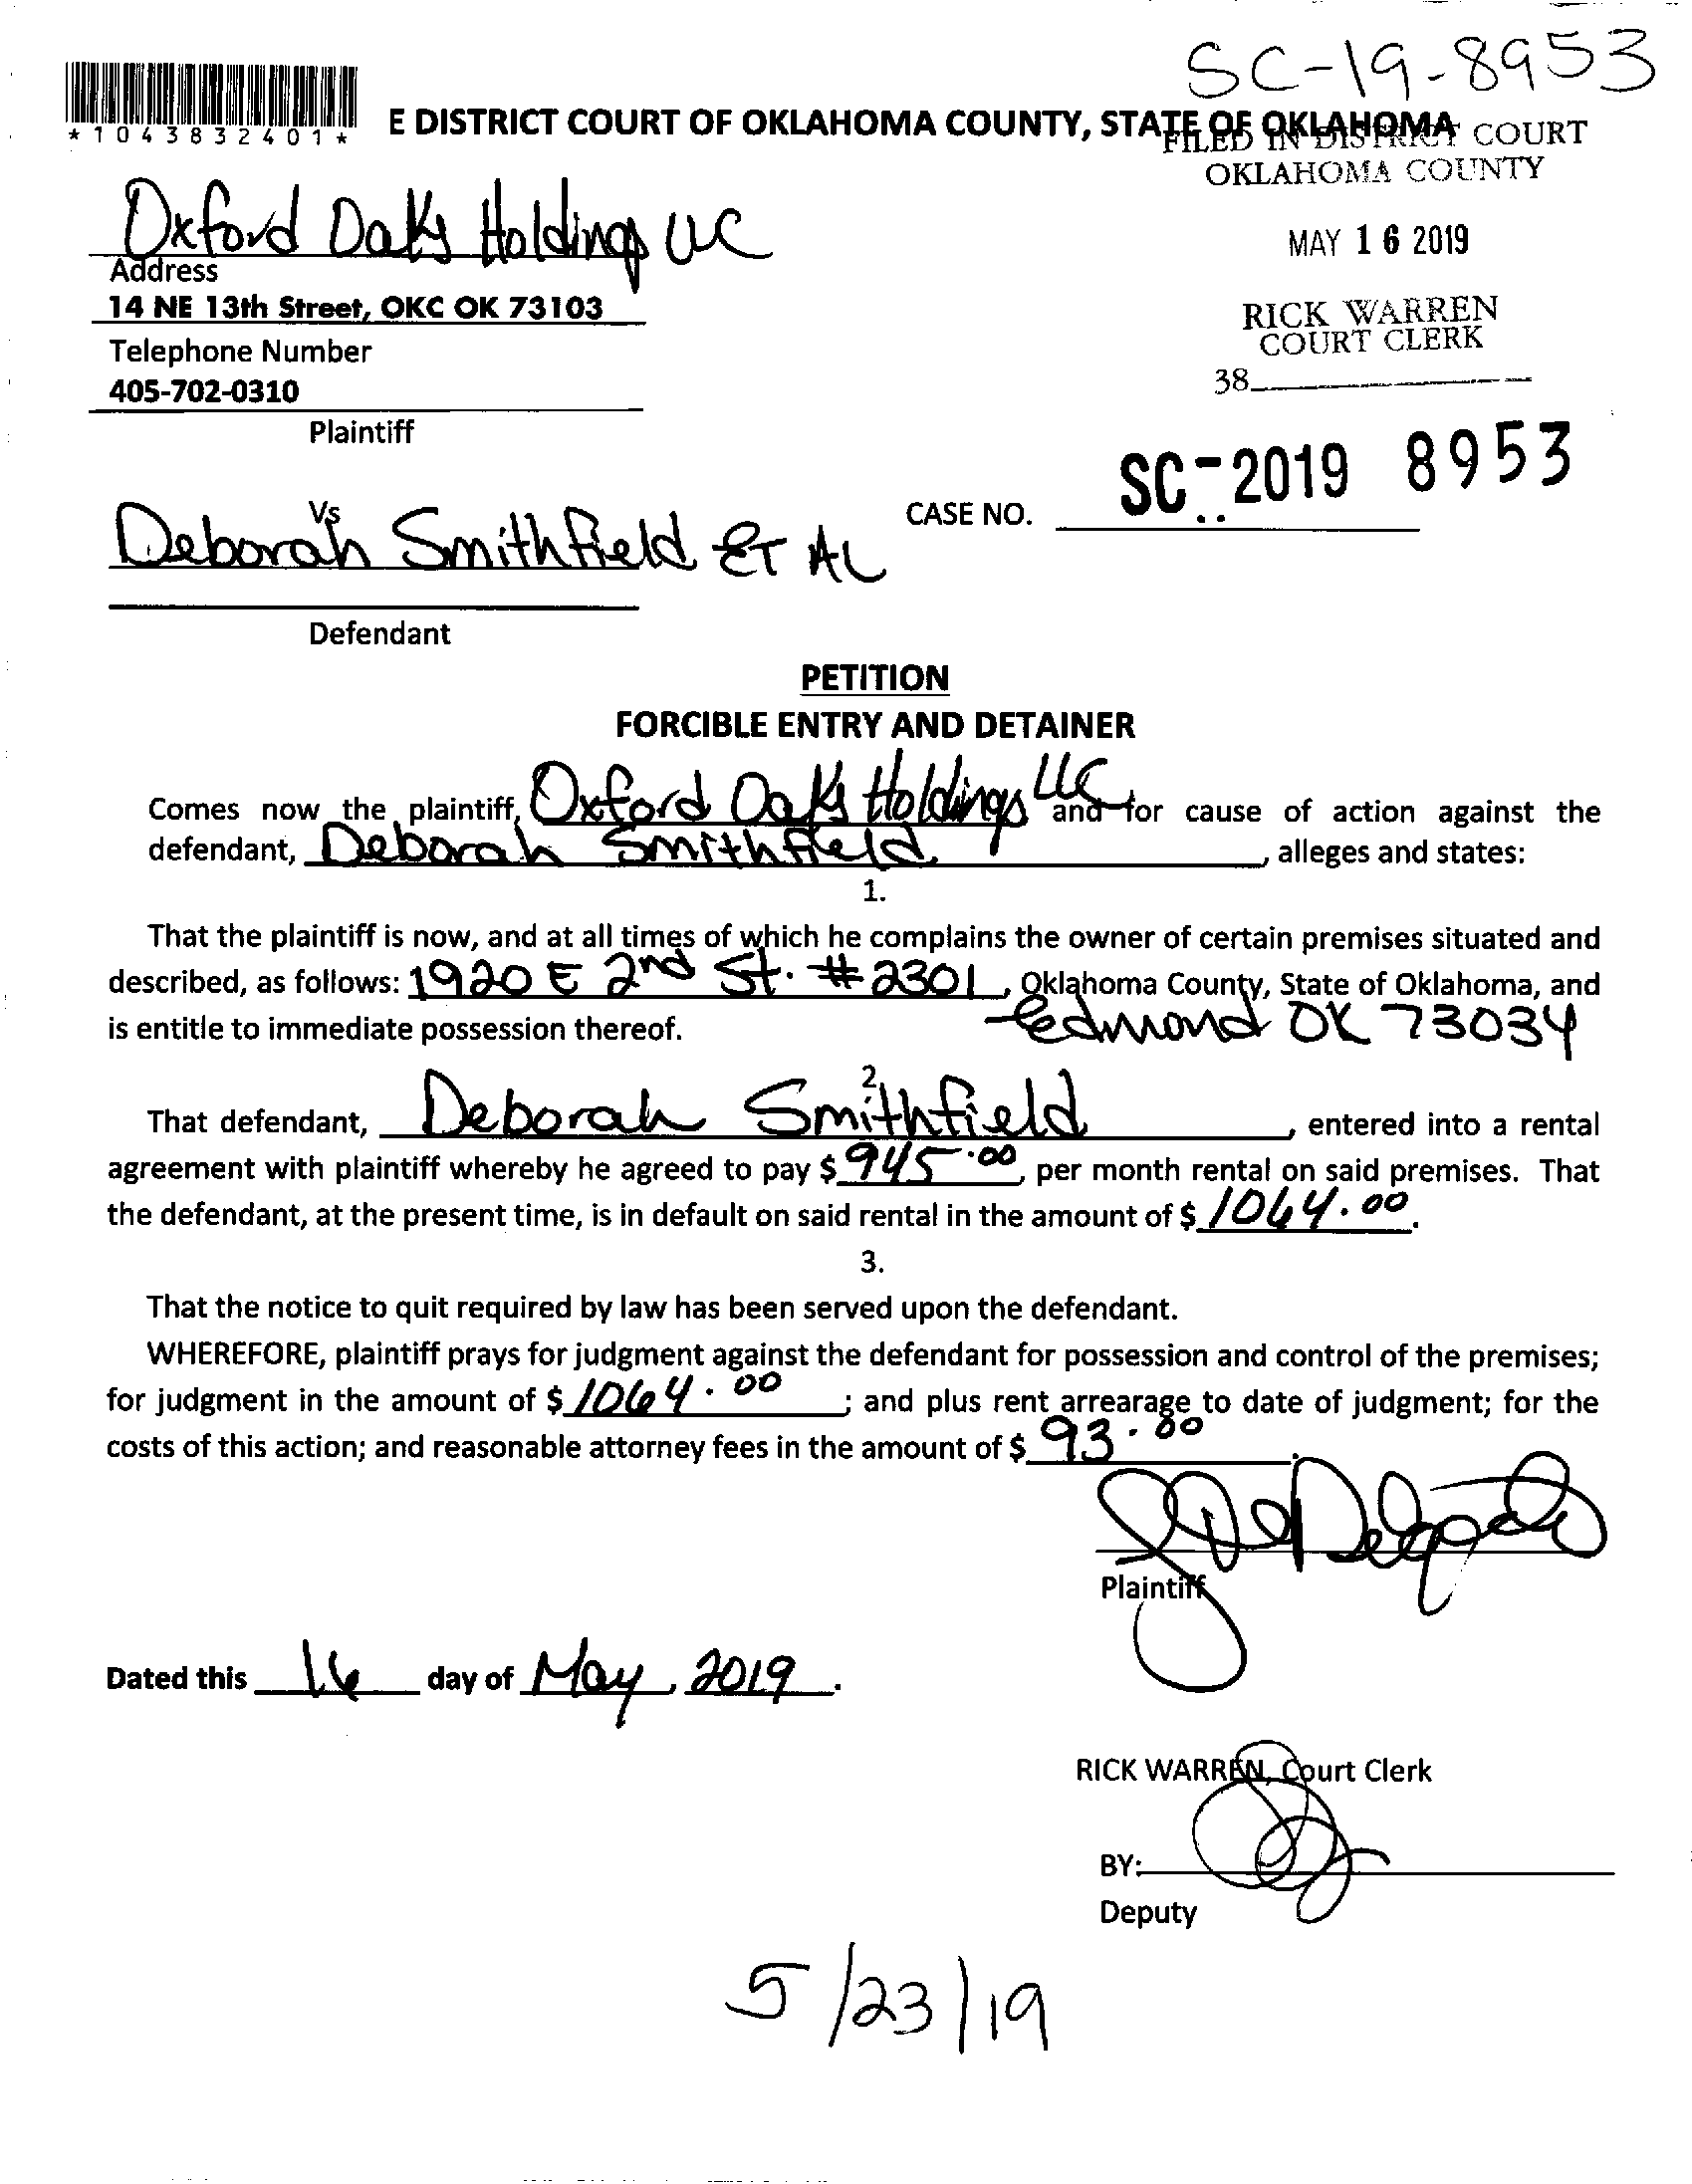 SC-19-8953
*1043832401*
E DISTRICT COURT OF OKLAHOMA COUNTY, STATE OF OKLAHOMA
FILED IN DISTRICT COURT
OKLAHOMA COUNTY
Oxford Oaks Holdings LLC
MAY 16 2019
Address
14 NE 13th Street, OKC OK 73103
RICK WARREN
COURT CLERK
Telephone Number
38
405-702-0310
Plaintiff
SC-2019 8953
Vs
CASE NO.
Deborah Smithfield ET AL
Defendant
PETITION
FORCIBLE ENTRY AND DETAINER
Comes now the plaintiff, Oxford Oaks Holdings LLC and for cause of action against the
defendant, Deborah Smithfield, alleges and states:
1.
That the plaintiff is now, and at all times of which he complains the owner of certain premises situated and
described, as follows: 1920 E 2nd St. # 2301, Oklahoma County, State of Oklahoma, and
is entitle to immediate possession thereof. Edmond OK 73034
2.
That defendant, Deborah Smithfield, entered into a rental
agreement with plaintiff whereby he agreed to pay $ 945.00, per month rental on said premises. That
the defendant, at the present time, is in default on said rental in the amount of $ 1064.00.
3.
That the notice to quit required by law has been served upon the defendant.
WHEREFORE, plaintiff prays for judgment against the defendant for possession and control of the premises;
for judgment in the amount of $ 1064.00; and plus rent arrearage to date of judgment; for the
costs of this action; and reasonable attorney fees in the amount of $ 93.00.
Plaintiff
Dated this 16 day of May, 2019.
RICK WARREN, Court Clerk
BY:
Deputy
5/23/19